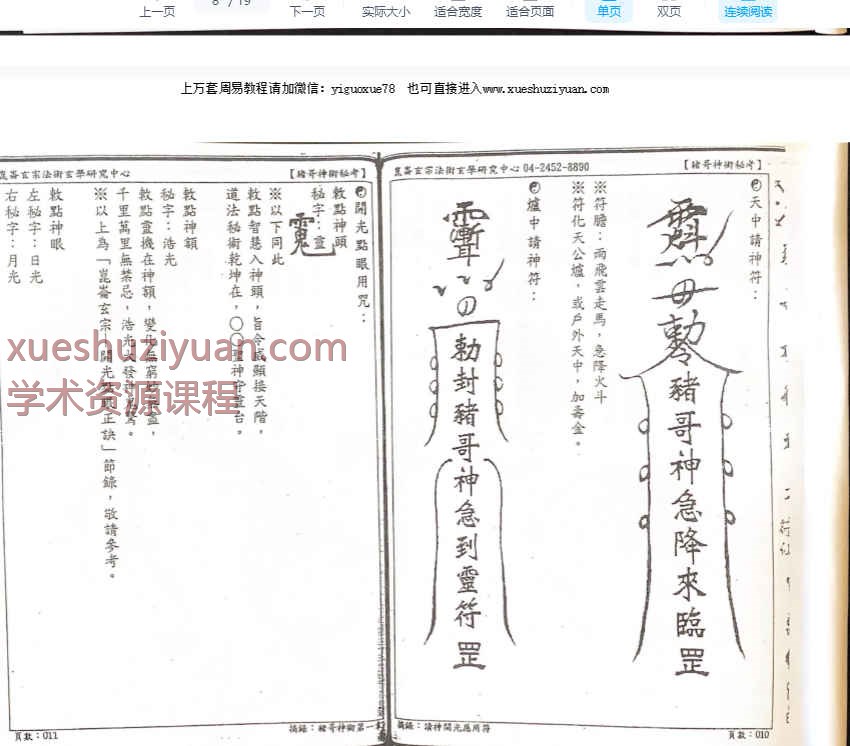 上一页
8 / 19
下一页
实际大小
适合宽度
适合页面
单页
双页
连续阅读
上万套周易教程请加微信：yiguoxue78　也可直接进入www.xueshuziyuan.com
崑崙玄宗法術玄學研究中心 04-2452-8890
【豬哥神術秘考】
天中請神符：
勅令豬哥神急降來臨罡
※符膽：雨飛雲走馬，急降火斗
※符化天公爐，或戶外天中，加壽金。
爐中請神符：
勅封豬哥神急到靈符罡
摘錄：請神開光應用符
頁數：010
崑崙玄宗法術玄學研究中心
【豬哥神術秘考】
開光點眼用咒：
敕點神頭
秘字：靈
※以下同此
敕點智慧入神頭，旨令威顯接天階，
道法秘術乾坤在，〇〇聖神守靈台。
敕點神額
秘字：浩光
敕點靈機在神額，變化無窮
千里萬里無禁忌，浩光大發
※以上為「崑崙玄宗－開光點眼正訣」節錄，敬請參考。
敕點神眼
左秘字：日光
右秘字：月光
摘錄：豬哥神術第一
頁數：011
xueshuziyuan.com
学术资源课程